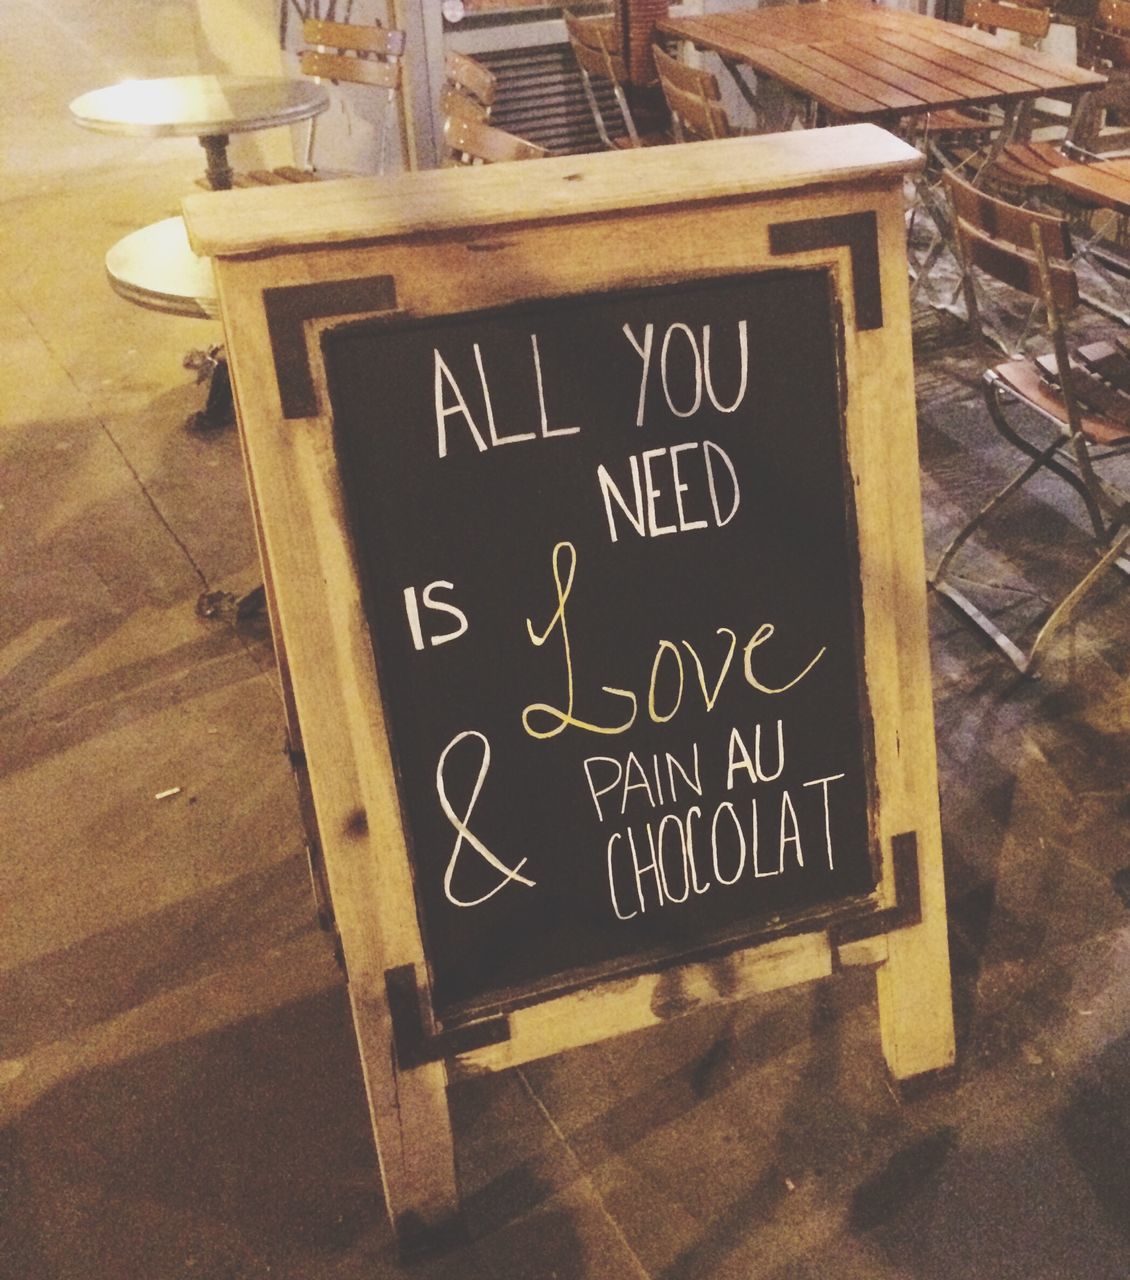 ALL YOU
NEED
IS Love
& PAIN AU
CHOCOLAT